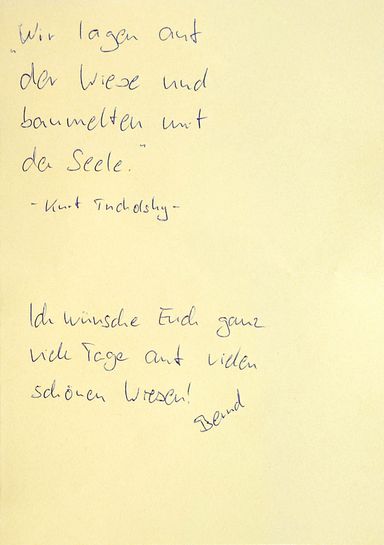 "Wir lagen auf
der Wiese und
baumelten mit
der Seele."
- Kurt Tucholsky -
Ich wünsche Euch ganz
viele Tage auf vielen
schönen Wiesen!
Bernd